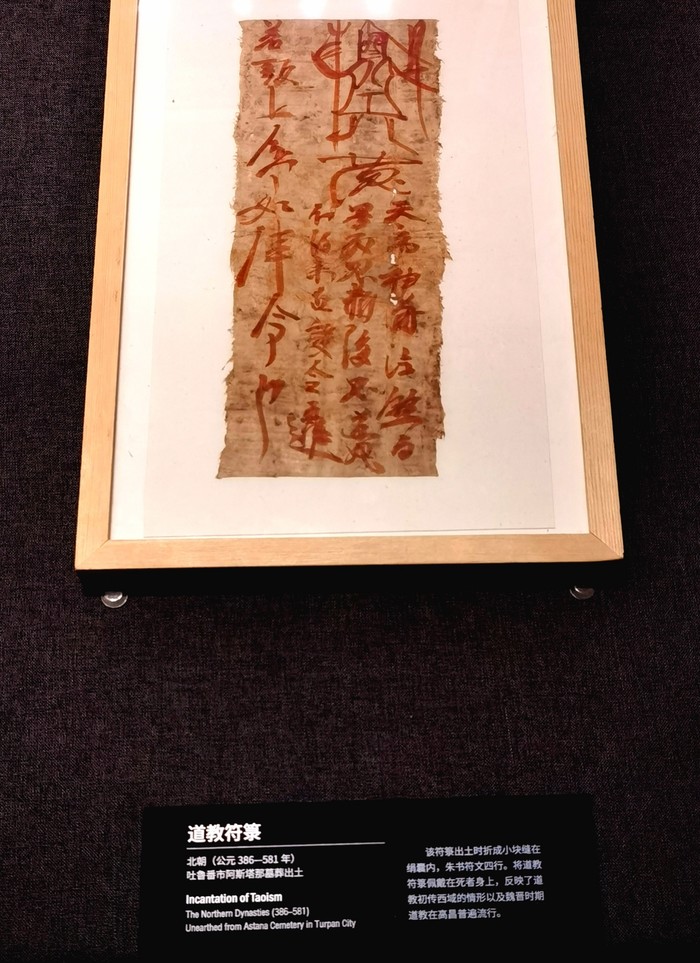 黄
天帝神前泣煞百
鬼
不得来近護令
上急如律令也
道教符箓
北朝（公元 386—581 年）
吐鲁番市阿斯塔那墓葬出土
Incantation of Taoism
The Northern Dynasties (386–581)
Unearthed from Astana Cemetery in Turpan City
该符箓出土时折成小块缝在
绢囊内，朱书符文四行。将道教
符箓佩戴在死者身上，反映了道
教初传西域的情形以及魏晋时期
道教在高昌普遍流行。